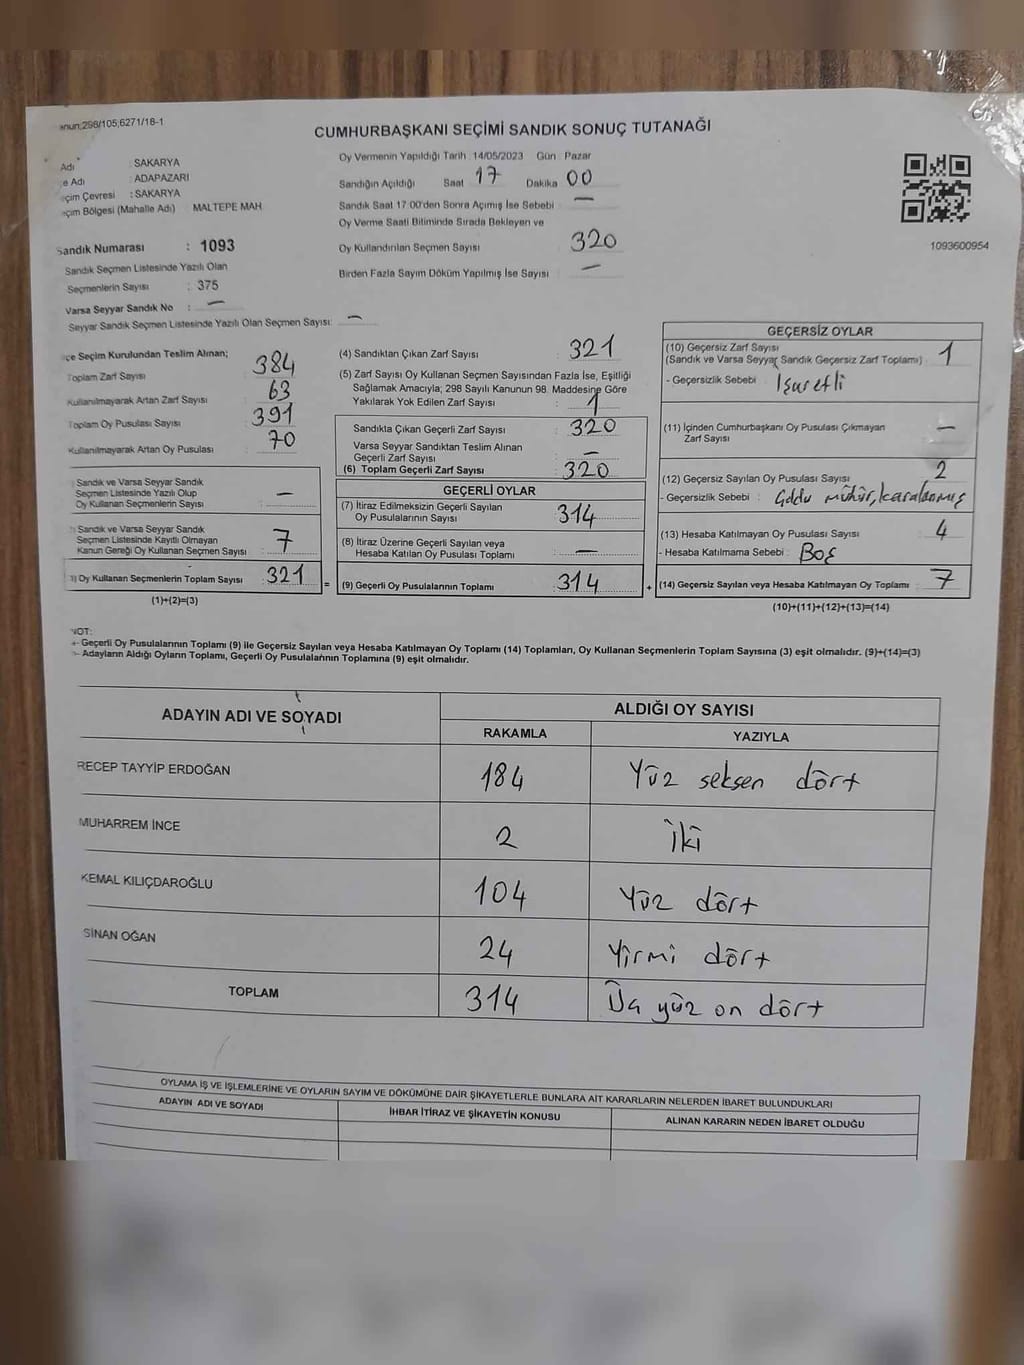 anun:298/105;6271/18-1
CUMHURBAŞKANI SEÇİMİ SANDIK SONUÇ TUTANAĞI
Adı : SAKARYA
e Adı : ADAPAZARI
çim Çevresi : SAKARYA
çim Bölgesi (Mahalle Adı) MALTEPE MAH.
Sandık Numarası : 1093
Sandık Seçmen Listesinde Yazılı Olan
Seçmenlerin Sayısı : 375
Varsa Seyyar Sandık No : —
Seyyar Sandık Seçmen Listesinde Yazılı Olan Seçmen Sayısı: —
Oy Vermenin Yapıldığı Tarih : 14/05/2023 Gün : Pazar
Sandığın Açıldığı Saat 17 Dakika 00
Sandık Saat 17:00'den Sonra Açımış İse Sebebi : —
Oy Verme Saati Bitiminde Sırada Bekleyen ve
Oy Kullandırılan Seçmen Sayısı : 320
Birden Fazla Sayım Döküm Yapılmış İse Sayısı : —
1093600954
çe Seçim Kurulundan Teslim Alınan;
Toplam Zarf Sayısı : 384
Kullanılmayarak Artan Zarf Sayısı : 63
Toplam Oy Pusulası Sayısı : 391
Kullanılmayarak Artan Oy Pusulası : 70
) Sandık ve Varsa Seyyar Sandık
Seçmen Listesinde Yazılı Olup
Oy Kullanan Seçmenlerin Sayısı : —
) Sandık ve Varsa Seyyar Sandık
Seçmen Listesinde Kayıtlı Olmayan
Kanun Gereği Oy Kullanan Seçmen Sayısı : 7
) Oy Kullanan Seçmenlerin Toplam Sayısı : 321 =
(1)+(2)=(3)
(4) Sandıktan Çıkan Zarf Sayısı : 321
(5) Zarf Sayısı Oy Kullanan Seçmen Sayısından Fazla İse, Eşitliği
Sağlamak Amacıyla; 298 Sayılı Kanunun 98. Maddesine Göre
Yakılarak Yok Edilen Zarf Sayısı : 1
Sandıkta Çıkan Geçerli Zarf Sayısı : 320
Varsa Seyyar Sandıktan Teslim Alınan
Geçerli Zarf Sayısı : —
(6) Toplam Geçerli Zarf Sayısı : 320
GEÇERLİ OYLAR
(7) İtiraz Edilmeksizin Geçerli Sayılan
Oy Pusulalarının Sayısı : 314
(8) İtiraz Üzerine Geçerli Sayılan veya
Hesaba Katılan Oy Pusulası Toplamı : —
(9) Geçerli Oy Pusulalarının Toplamı : 314 +
GEÇERSİZ OYLAR
(10) Geçersiz Zarf Sayısı
(Sandık ve Varsa Seyyar Sandık Geçersiz Zarf Toplamı) : 1
- Geçersizlik Sebebi : İşaretli
(11) İçinden Cumhurbaşkanı Oy Pusulası Çıkmayan
Zarf Sayısı : —
(12) Geçersiz Sayılan Oy Pusulası Sayısı : 2
- Geçersizlik Sebebi : mühür, karalanmış
(13) Hesaba Katılmayan Oy Pusulası Sayısı : 4
- Hesaba Katılmama Sebebi : Boş
(14) Geçersiz Sayılan veya Hesaba Katılmayan Oy Toplamı : 7
(10)+(11)+(12)+(13)=(14)
NOT:
- Geçerli Oy Pusulalarının Toplamı (9) ile Geçersiz Sayılan veya Hesaba Katılmayan Oy Toplamı (14) Toplamları, Oy Kullanan Seçmenlerin Toplam Sayısına (3) eşit olmalıdır. (9)+(14)=(3)
- Adayların Aldığı Oyların Toplamı, Geçerli Oy Pusulalarının Toplamına (9) eşit olmalıdır.
ADAYIN ADI VE SOYADI
ALDIĞI OY SAYISI
RAKAMLA YAZIYLA
RECEP TAYYİP ERDOĞAN 184 Yüz seksen dört
MUHARREM İNCE 2 İki
KEMAL KILIÇDAROĞLU 104 Yüz dört
SİNAN OĞAN 24 Yirmi dört
TOPLAM 314 Üç yüz on dört
OYLAMA İŞ VE İŞLEMLERİNE VE OYLARIN SAYIM VE DÖKÜMÜNE DAİR ŞİKAYETLERLE BUNLARA AİT KARARLARIN NELERDEN İBARET BULUNDUKLARI
ADAYIN ADI VE SOYADI İHBAR İTİRAZ VE ŞİKAYETİN KONUSU ALINAN KARARIN NEDEN İBARET OLDUĞU